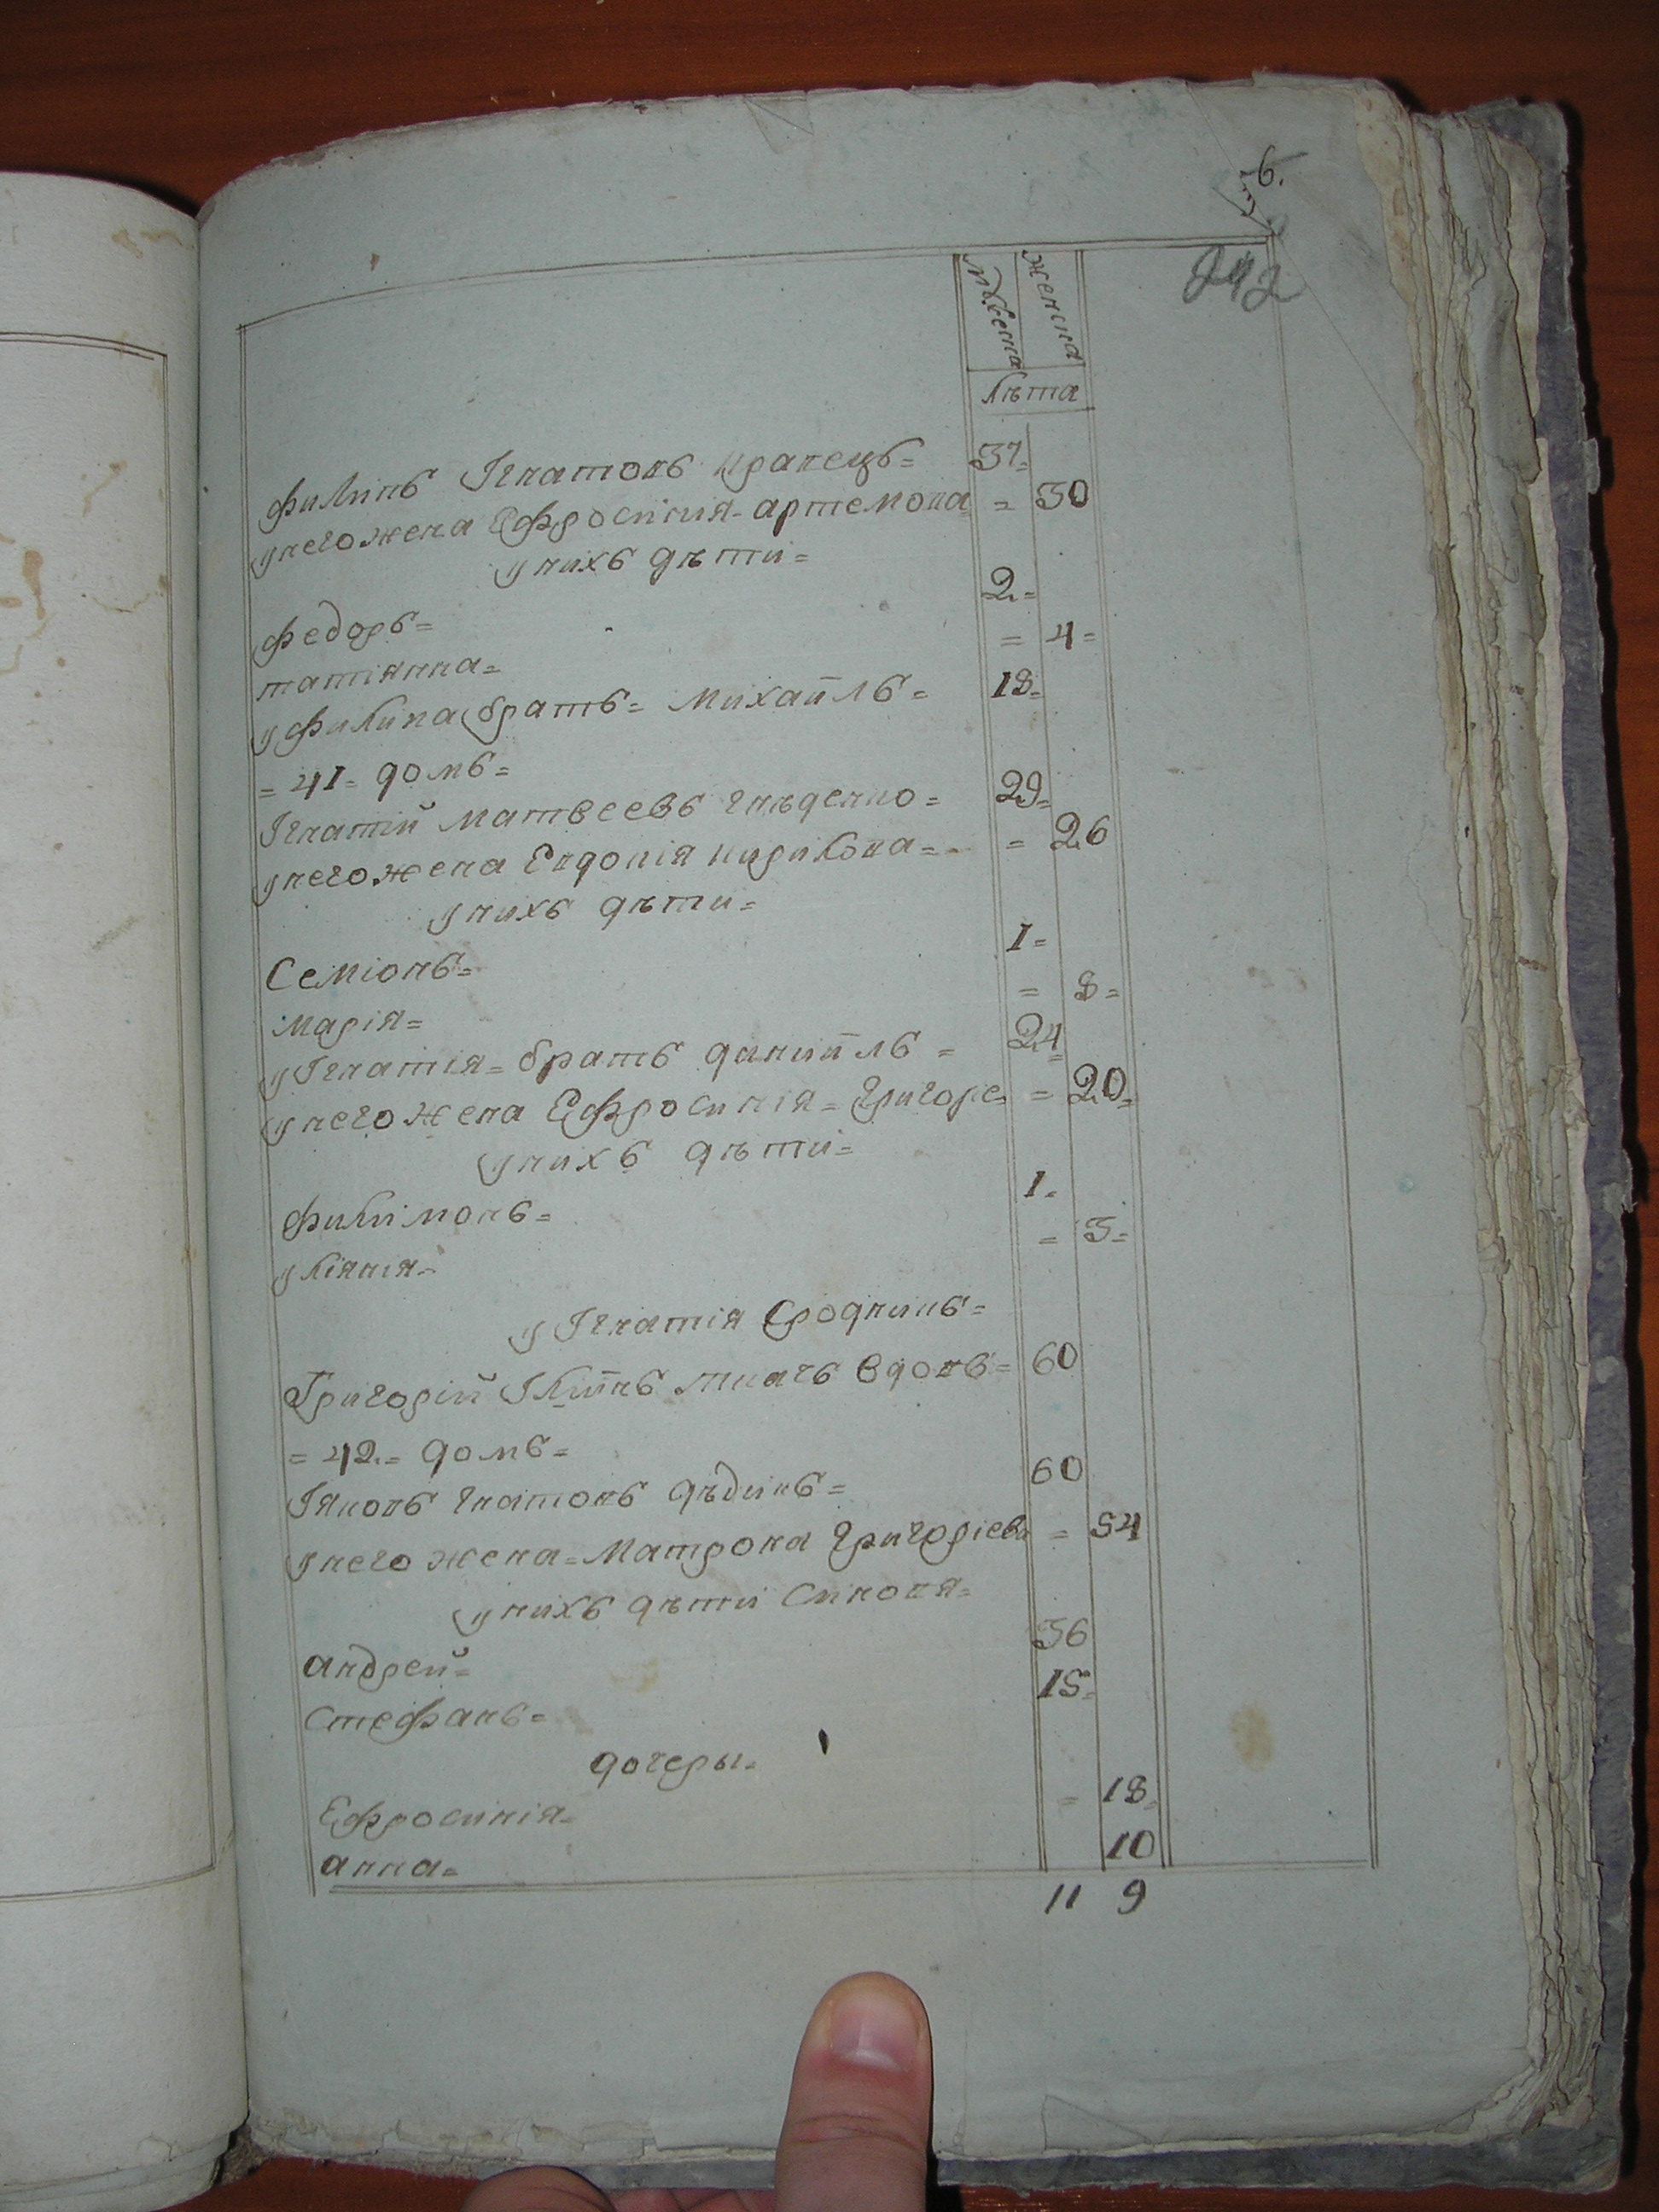 6.
242
мужеска женска
лѣта
Филипъ Ігнатовъ кравецъ= 37=
у него жена Ефросинія артемова = 30
у нихъ дѣти=
Федоръ= 2.=
татіянна= = 4=
у Филипа братъ= михаилъ= 18=
= 41= домъ=
Ігнатий матвеевъ гнѣденко= 29=
у него жена Евдокія кирилова= = 26
у нихъ дѣти=
Семіонъ= 1=
марія= = 8=
у Ігнатія= братъ даниилъ= 24=
у него жена Ефросинія= григоре= = 20=
у нихъ дѣти=
Филимонъ= 1=
уліянія= = 3=
у Ігнатія сродникъ=
Григорій ткачъ вдовъ= 60
= 42.= домъ=
Іяковъ гнатовъ дѣдикъ= 60
у него жена= матрона григоріева = 54
у нихъ дѣти синовя=
андрей= 36
Стефанъ= 15=
дочеры=
Ефросинія= = 18=
анна= 10
11 9